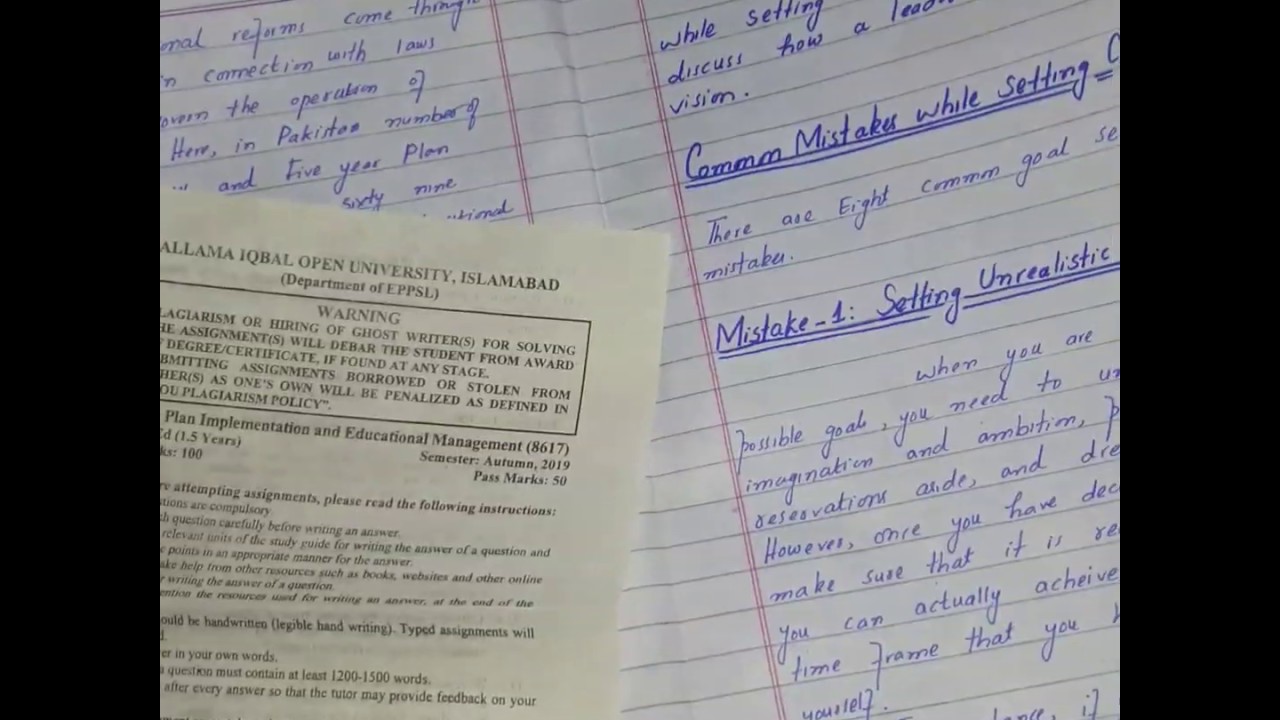 onal reforms come through
in connection with laws
overn the operation of
Here, in Pakistan number of
... and Five year Plan
sixty nine
ational
while setting
discuss how a lead
vision.
Common Mistakes while Setting
There are Eight common goal se
mistakes.
Mistake-1: Setting Unrealistic
when you are
possible goals, you need to un
imagination and ambition, p
reservations aside, and dre
However, once you have dec
make sure that it is re
you can actually acheive
time frame that you h
yourself.
if
ALLAMA IQBAL OPEN UNIVERSITY, ISLAMABAD
(Department of EPPSL)
WARNING
LAGIARISM OR HIRING OF GHOST WRITER(S) FOR SOLVING
HE ASSIGNMENT(S) WILL DEBAR THE STUDENT FROM AWARD
F DEGREE/CERTIFICATE, IF FOUND AT ANY STAGE.
BMITTING ASSIGNMENTS BORROWED OR STOLEN FROM
HER(S) AS ONE'S OWN WILL BE PENALIZED AS DEFINED IN
OU PLAGIARISM POLICY".
Plan Implementation and Educational Management (8617)
Ed (1.5 Years)
Semester: Autumn, 2019
ks: 100
Pass Marks: 50
re attempting assignments, please read the following instructions:
stions are compulsory
h question carefully before writing an answer.
relevant units of the study guide for writing the answer of a question and
e points in an appropriate manner for the answer.
ake help from other resources such as books, websites and other online
r writing the answer of a question.
ention the resources used for writing an answer, at the end of the
ould be handwritten (legible hand writing). Typed assignments will
d.
er in your own words.
a question must contain at least 1200-1500 words.
after every answer so that the tutor may provide feedback on your